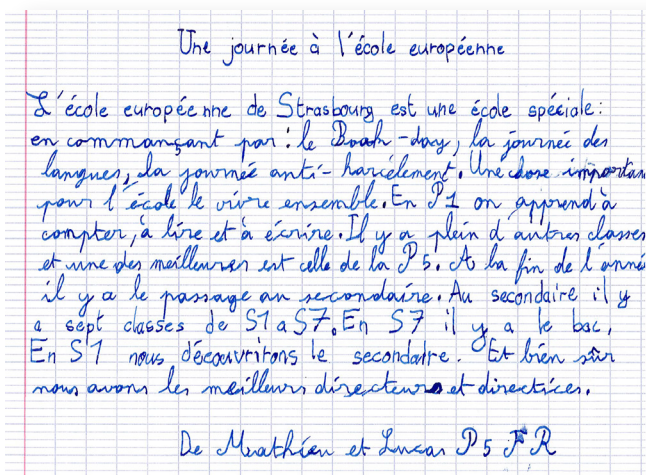 Une journée à l'école européenne
L'école européenne de Strasbourg est une école spéciale:
en commançant par: le Book-day, la journée des
langues, la journée anti-harcélement. Une dose importan
pour l'école le vivre ensemble. En P1 on apprend à
compter, à lire et à écrire. Il y a plein d'autres classes
et une des meilleures est celle de la P5. A la fin de l'anné
il y a le passage au secondaire. Au secondaire il y
a sept classes de S1 a S7. En S7 il y a le bac.
En S1 nous découvritons le secondaire. Et bien sûr
nous avons les meilleurs directeurs et directices.
De Mathieu et Lucas P5 FR